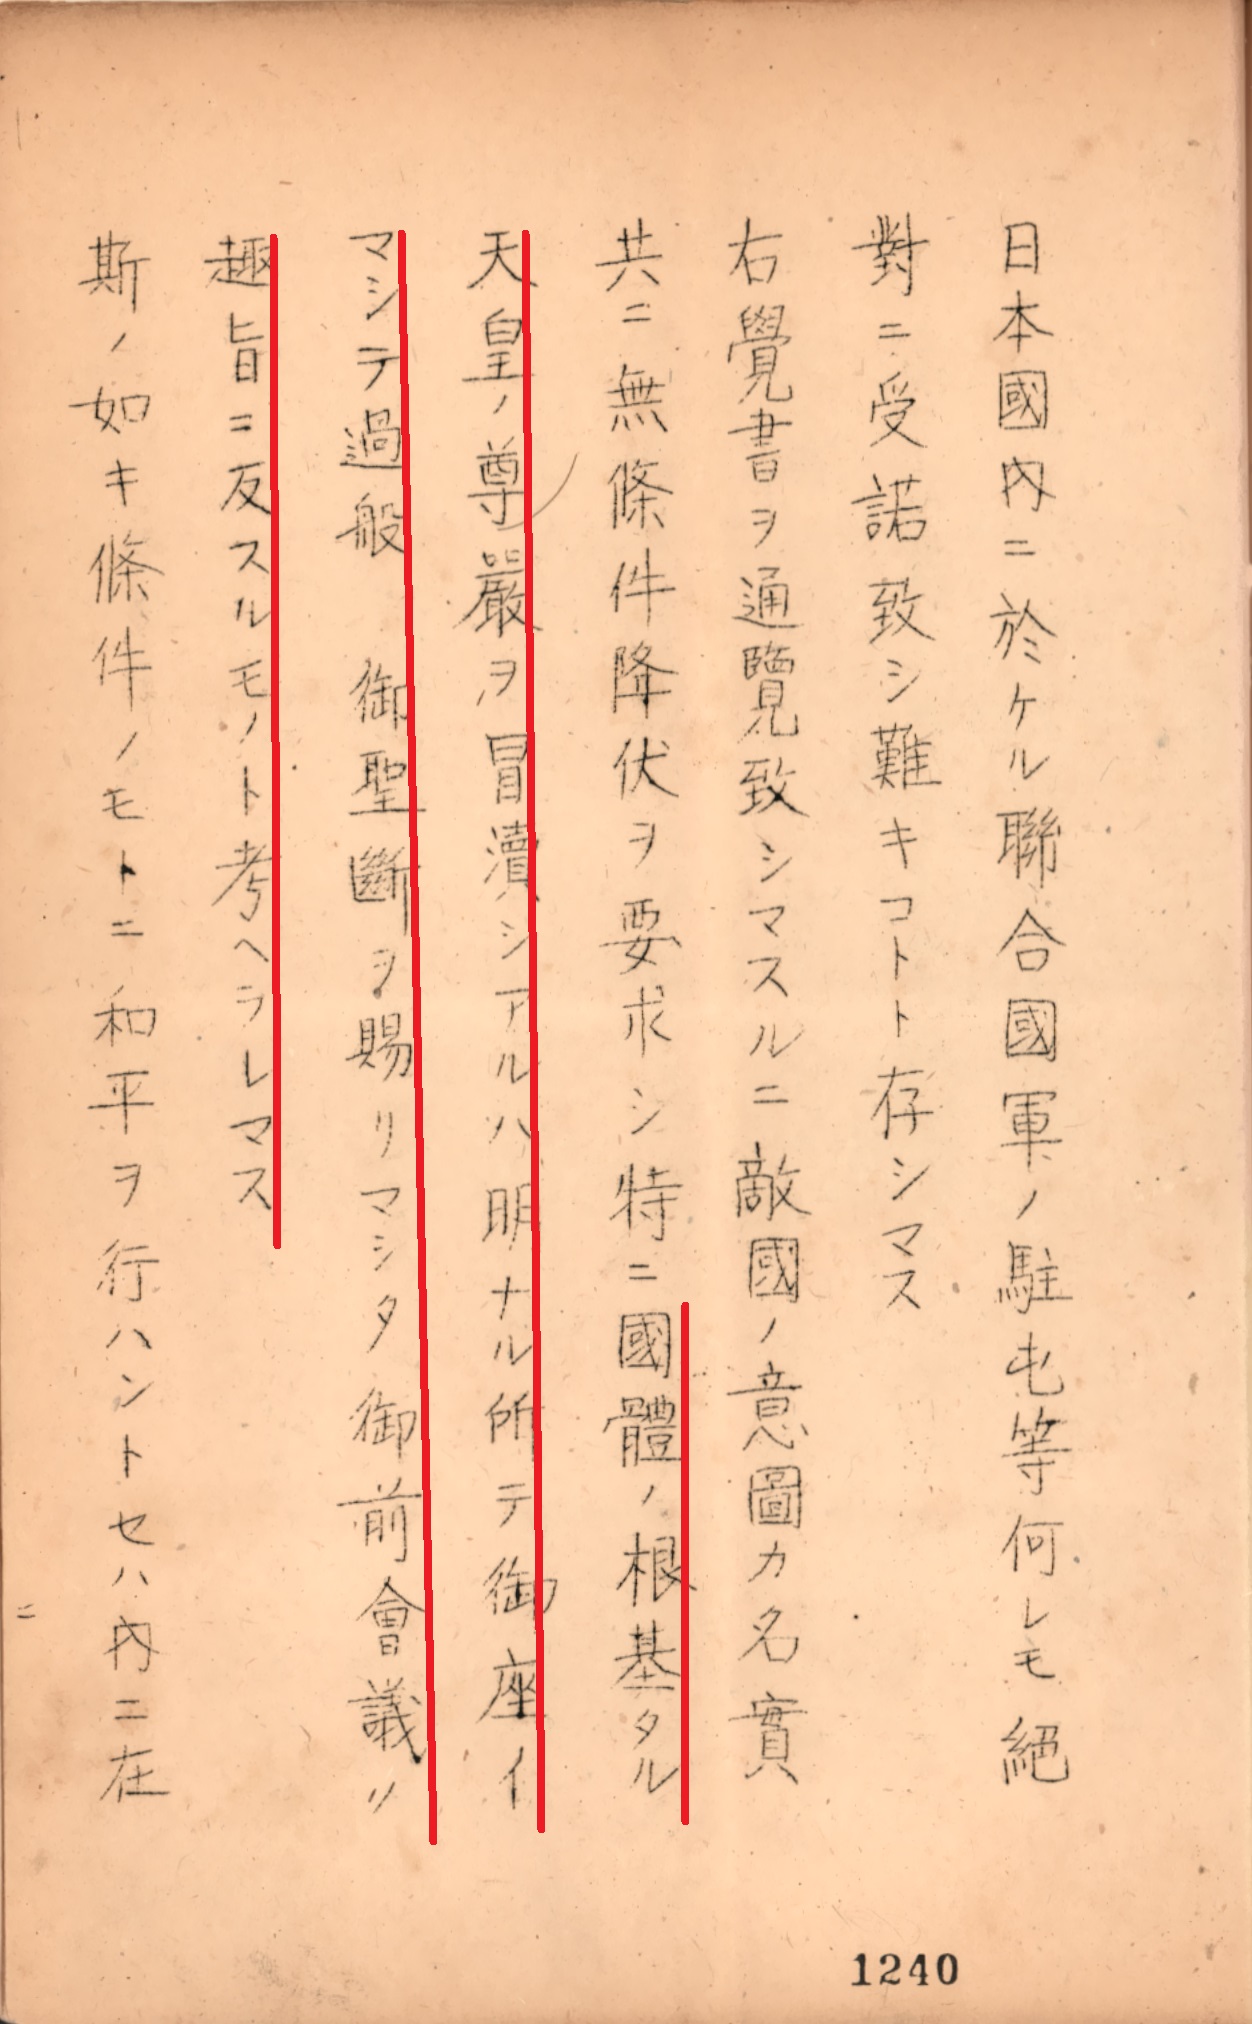 日本國內ニ於ケル聯合國軍ノ駐屯等何レモ絕
對ニ受諾致シ難キコトト存シマス
右覺書ヲ通覽致シマスルニ敵國ノ意圖カ名實
共ニ無條件降伏ヲ要求シ特ニ國體ノ根基タル
天皇ノ尊嚴ヲ冒瀆シアルハ明ナル所テ御座イ
マシテ過般　御聖斷ヲ賜リマシタ御前會議ノ
趣旨ニ反スルモノト考ヘラレマス
斯ノ如キ條件ノモトニ和平ヲ行ハントセハ內ニ在
1240